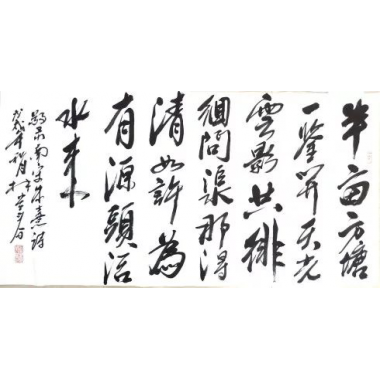 半亩方塘
一鉴開天光
雲影共徘
徊問渠那得
清如許為
有源頭活
水来
南宋朱熹詩
戊戌年